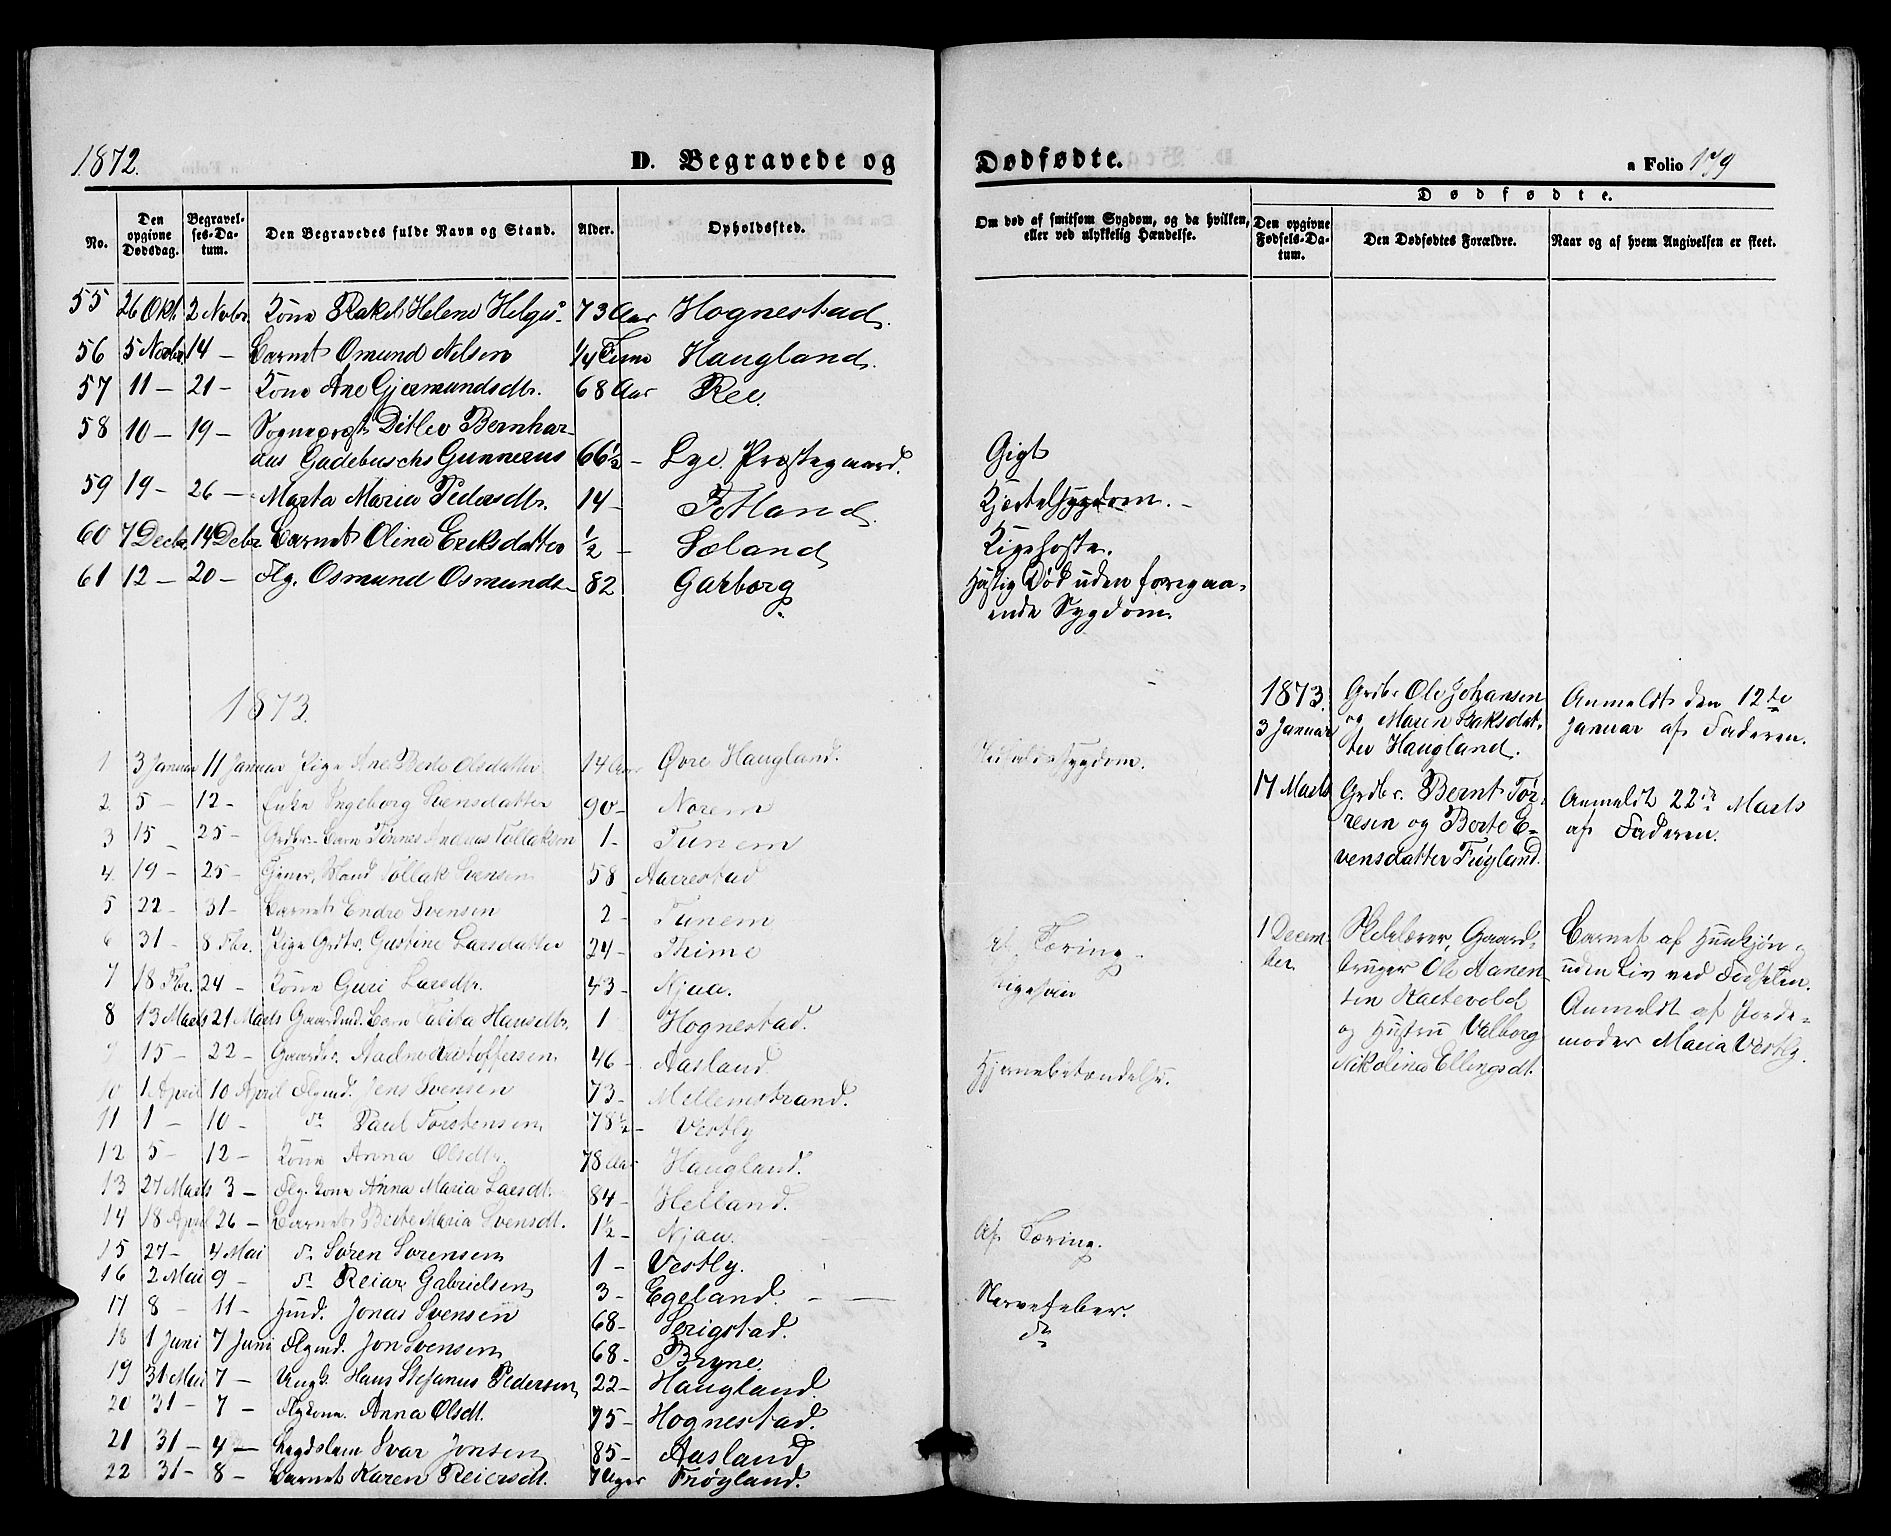 1872.
D. Begravede og
Dødfødte.
a Folio 179
Dødfødte.
No.
Den opgivne Dødsdag.
Begravelses-Datum.
Den Begravedes fulde Navn og Stand.
Alder.
Opholdssted.
Om død af smitsom Sygdom, og da hvilken, eller ved ulykkelig Hændelse.
Den opgivne Fødsels-Datum.
Den Dødfødtes Forældre.
Naar og af hvem Angivelsen er skeet.
55 26 Okt. 2 Novbr. Kone Rakel Helene Helges- 73 Aar Hognestad.
56 5 Novbr. 14 — Barnet Omund Nilsen 1/4 Time Haugland.
57 11 — 21 — Kone Ane Gjermundsdtr. 68 Aar Ree.
58 10 — 19 — Sogneprest Ditlev Bernhar-
dus Gadebuschs Gunnerus 66 1/2 — Lye Præstegaard. Gigt
59 19 — 26 — Marta Maria Pedersdtr. 14 — Fotland. Kjertelsygdom. —
60 7 Decbr. 14 Debr. Barnet Olina Eriksdatter 1/2 — Sæland Kighoste.
61 12 — 20 — Flg. Osmund Osmunds- 82 Garborg Hastig Død uden foregaa-
ende Sygdom.
1873.
1 3 Januar 11 Januar Pige Ane Berte Olsdatter 14 Aar Øvre Haugland.
2 5 — 12 — Enke Ingeborg Svensdatter 90 — Norem
3 15 — 25 — Grdbr. Barn Tønnes Andreas Tollaksen 1 — Tunem
4 19 — 25 — Mand Tollak Svensen 58 Aarrestad
5 22 — 31 — Barnet Endre Svensen 2 — Tunem
6 31 — 8 Fbr. Pige Grdbr. Gustine Larsdatter 24 — Thime Af Tæring.
7 18 Fbr. 24 — Kone Guri Larsdtr. 43 — Njaa.
8 13 Marts 21 Marts Gaardmd. Barn Talita Hansdtr. 1 Hognestad.
9 15 — 22 — Gaardbr. Aadne Kristoffersen 46 — Aasland Hjernebetændelse.
10 1 April 10 April Flgmd. Jens Svensen 73 — Mellemstrand.
11 1 — 10 — do Paul Torstensen 78 1/2 — Vestly
12 5 — 12 — Kone Anna Olsdtr. 78 Aar Haugland.
13 27 Marts 3 — Flg. Kone Anna Maria Larsdt. 84 — Helland.
14 18 April 26 — Barnet Berte Maria Svensdt. 1 1/2 — Njaa. Af Tæring.
15 27 — 4 Mai do Søren Sørensen 1 — Vestly.
16 2 Mai 9 — do Reiar Gabrielsen 3 — Egeland. Nervefeber.
17 8 — 11 — Husmd. Jonas Svensen 68 — Serigstad. do
18 1 Juni 7 Juni Flgmd. Jon Svensen 68 — Bryne.
19 31 Mai 7 — Ungk. Hans Stefanus Pedersen 22 — Haugland.
20 31 — 7 — Flgkone. Anna Olsdt. 75 — Hognestad.
21 31 — 4 — Legdslem Ivar Jonsen 85 — Aasland
22 31 — 8 — Barnet Karen Reiersdt. 7 Uger Frøyland.
1873. Grdbr. Ole Johansen Anmeldt den 12te
3 Januar og Maren Isaksdat- Januar af Faderen.
ter Haugland.
17 Marts Grdbr. Bernt Tør- Anmeldt 22de Marts
resen og Berte E- af Faderen.
vensdatter Frøyland.
1 Decem- Skolelærer, Gaard- Barnet af Hunkjøn og
ber. bruger Ole Aanen- uden Liv ved Fødselen.
sen Kartevold Anmeldt af Jorde-
og Hustru Valborg moder Maria Vestly.
Nikoline Ellingsdt.